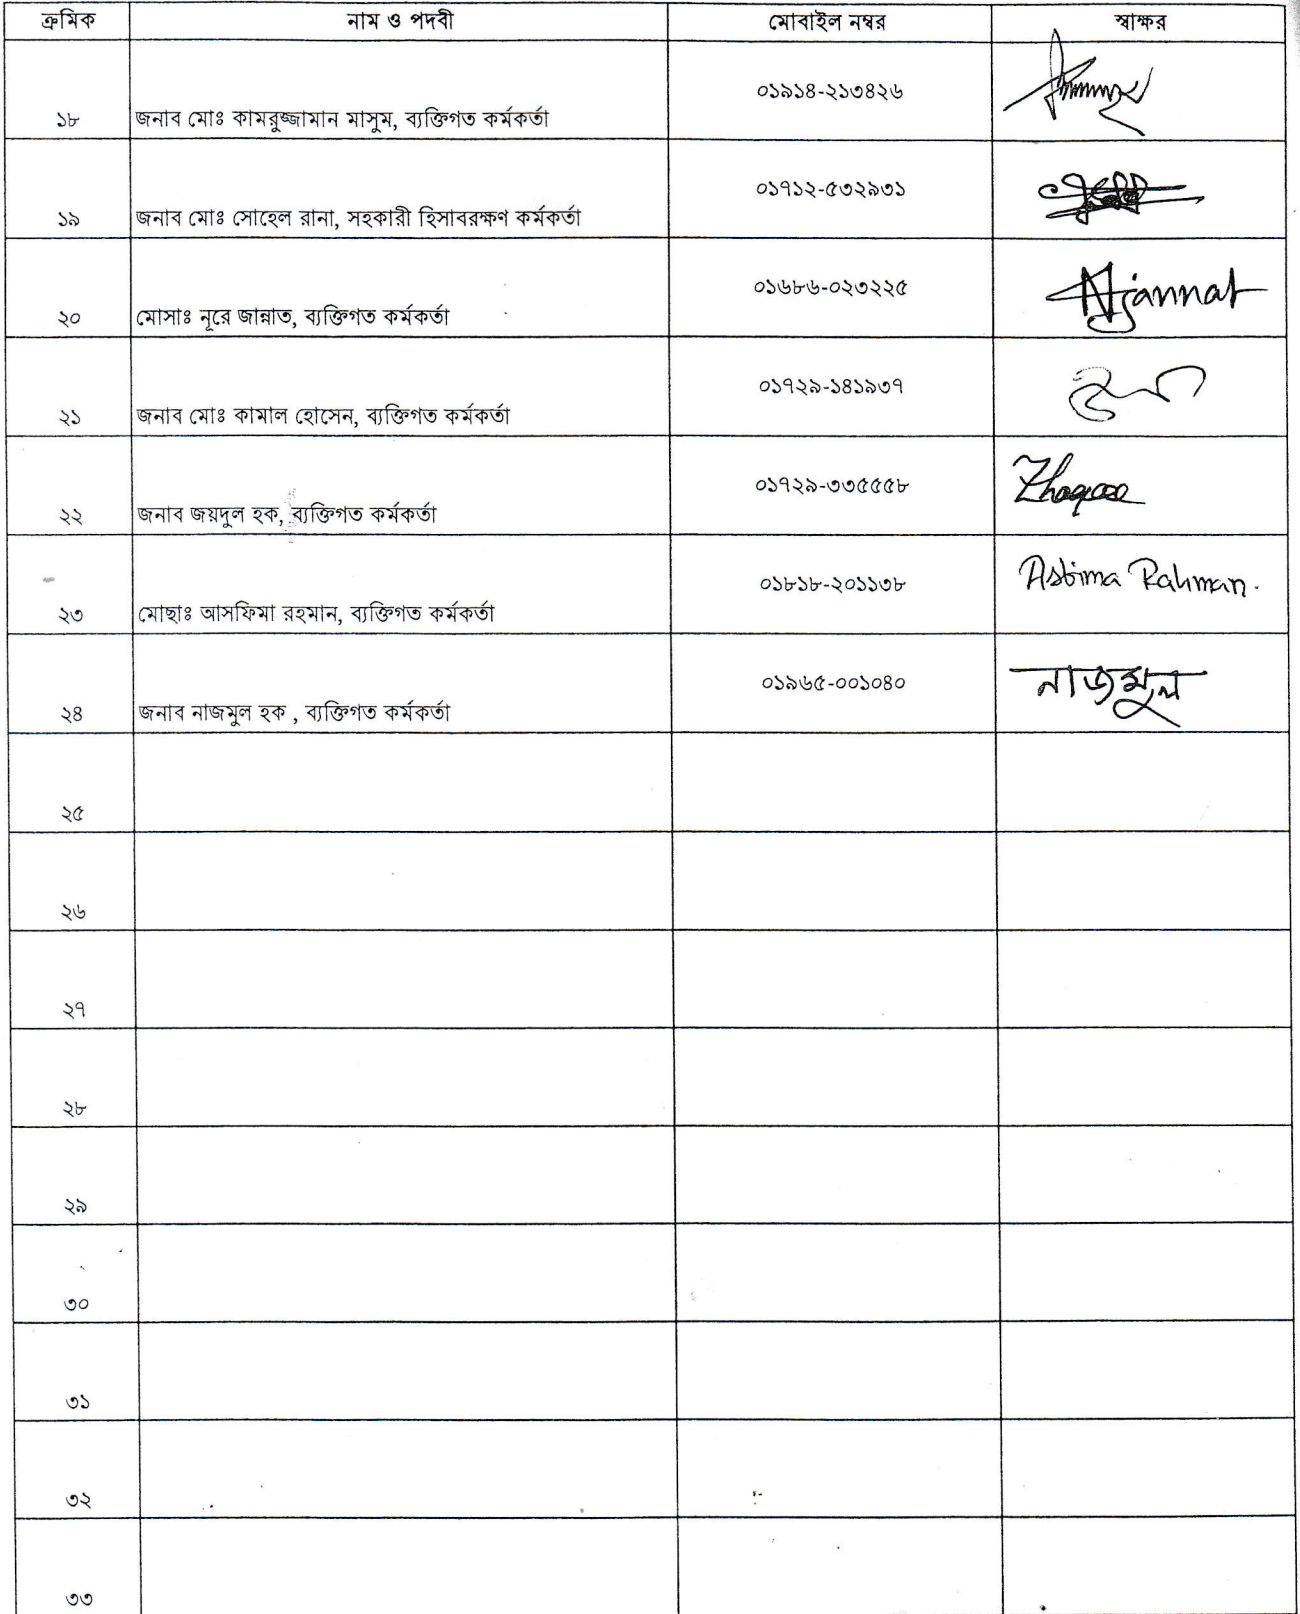 ক্রমিক নাম ও পদবী মোবাইল নম্বর স্বাক্ষর
১৮ জনাব মোঃ কামরুজ্জামান মাসুম, ব্যক্তিগত কর্মকর্তা ০১৯১৪-২১৩৪২৬
১৯ জনাব মোঃ সোহেল রানা, সহকারী হিসাবরক্ষণ কর্মকর্তা ০১৭১২-৫৩২৯৩১
২০ মোসাঃ নূরে জান্নাত, ব্যক্তিগত কর্মকর্তা ০১৬৮৬-০২৩২২৫ Njannat
২১ জনাব মোঃ কামাল হোসেন, ব্যক্তিগত কর্মকর্তা ০১৭২৯-১৪১৯৩৭
২২ জনাব জয়দুল হক, ব্যক্তিগত কর্মকর্তা ০১৭২৯-৩৩৫৫৫৮
২৩ মোছাঃ আসফিমা রহমান, ব্যক্তিগত কর্মকর্তা ০১৮১৮-২০১১৩৮ Asfima Rahman.
২৪ জনাব নাজমুল হক , ব্যক্তিগত কর্মকর্তা ০১৯৬৫-০০১০৪০ নাজমুল
২৫
২৬
২৭
২৮
২৯
৩০
৩১
৩২
৩৩